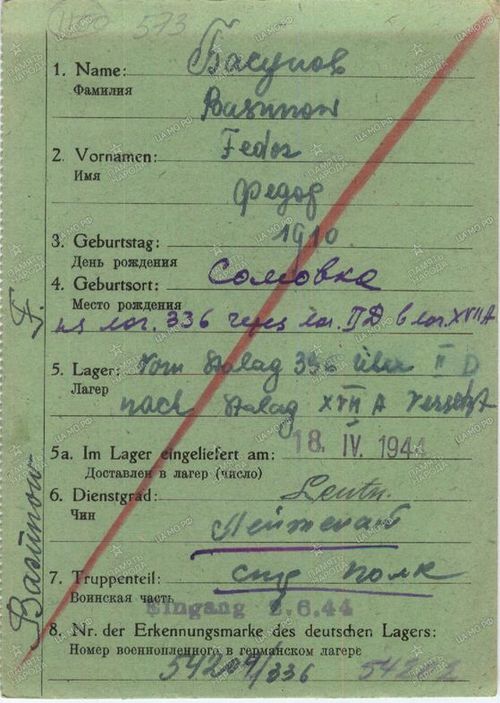 573
1. Name: Басунов
Фамилия
Basunow
2. Vornamen: Fedor
Имя
Федор
3. Geburtstag: 1910
День рождения
4. Geburtsort: Сомовка
Место рождения
из лаг. 336 через лаг. II Д в лаг. XVII А
5. Lager: Vom Stalag 336 über II D
Лагерь
nach Stalag XVII A versetzt
5a. Im Lager eingeliefert am: 18. IV. 1944
Доставлен в лагерь (число)
6. Dienstgrad: Leutn.
Чин
Лейтенант
7. Truppenteil: стр полк
Воинская часть
Eingang 6.44
8. Nr. der Erkennungsmarke des deutschen Lagers:
Номер военнопленного в германском лагере
/336
Basunow F.